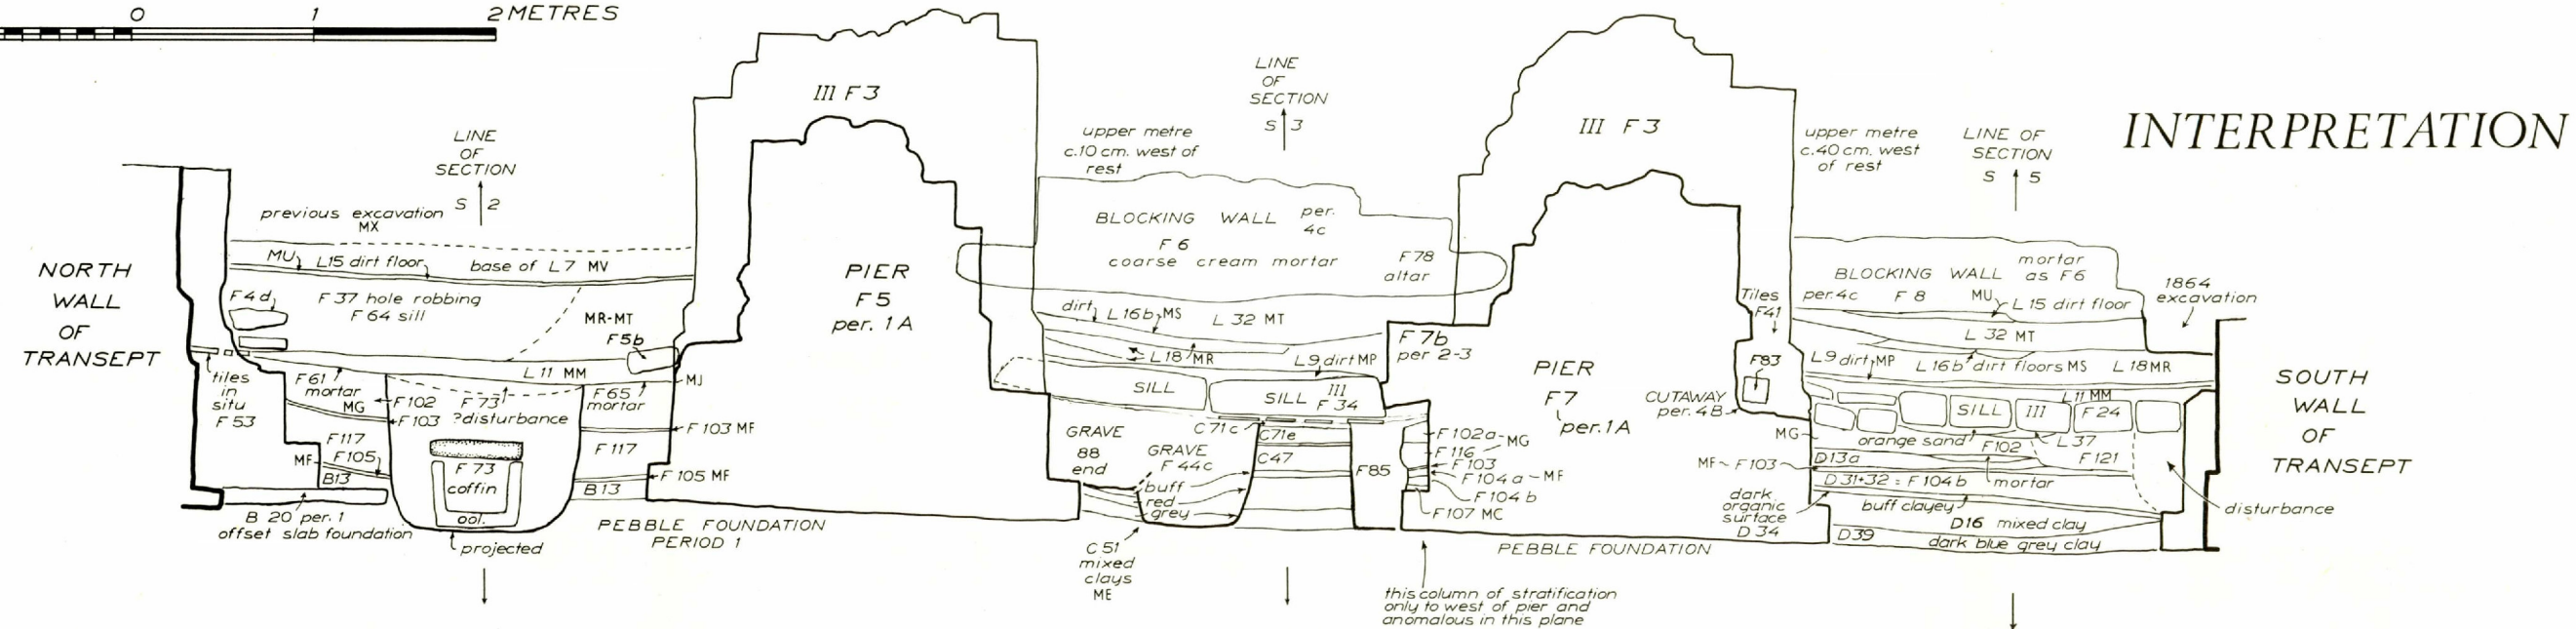 0 1 2 METRES
INTERPRETATION
NORTH
WALL
OF
TRANSEPT
previous excavation
MX
LINE
OF
SECTION
S 2
MU
L15 dirt floor
base of L7 MV
F4d
F37 hole robbing
F64 sill
MR-MT
F5b
L11 MM
MJ
tiles
in
situ
F53
F61
mortar
MG
F102
F103
F73
?disturbance
F65
mortar
F103 MF
F117
F117
MF
F105
F105 MF
B13
B13
F73
coffin
ool.
B 20 per. 1
offset slab foundation
projected
PEBBLE FOUNDATION
PERIOD 1
III F3
PIER
F5
per. 1A
LINE
OF
SECTION
S 3
upper metre
c.10 cm. west of
rest
BLOCKING WALL per.
4c
F6
coarse cream mortar
F78
altar
dirt
L16b MS
L32 MT
L18 MR
L9 dirt MP
SILL
SILL III
F34
F7b
per 2-3
C71c
C71e
C47
F85
GRAVE
88
end
GRAVE
F44c
buff
red
grey
C51
mixed
clays
ME
F102a MG
F116
F103
F104a MF
F104b
F107 MC
this column of stratification
only to west of pier and
anomalous in this plane
III F3
PIER
F7
per. 1A
PEBBLE FOUNDATION
Tiles
F41
F83
CUTAWAY
per. 4B
upper metre
c.40 cm. west
of rest
LINE OF
SECTION
S 5
BLOCKING WALL mortar
as F6
per. 4c F8
MU
L15 dirt floor
1864
excavation
L32 MT
L9 dirt MP
L16b dirt floors MS
L18 MR
L11 MM
SILL III F24
MG
orange sand
F102
L37
F121
MF F103
D13a
D31+32 = F104b
mortar
dark
organic
surface
D34
buff clayey
D16 mixed clay
D39
dark blue grey clay
disturbance
SOUTH
WALL
OF
TRANSEPT